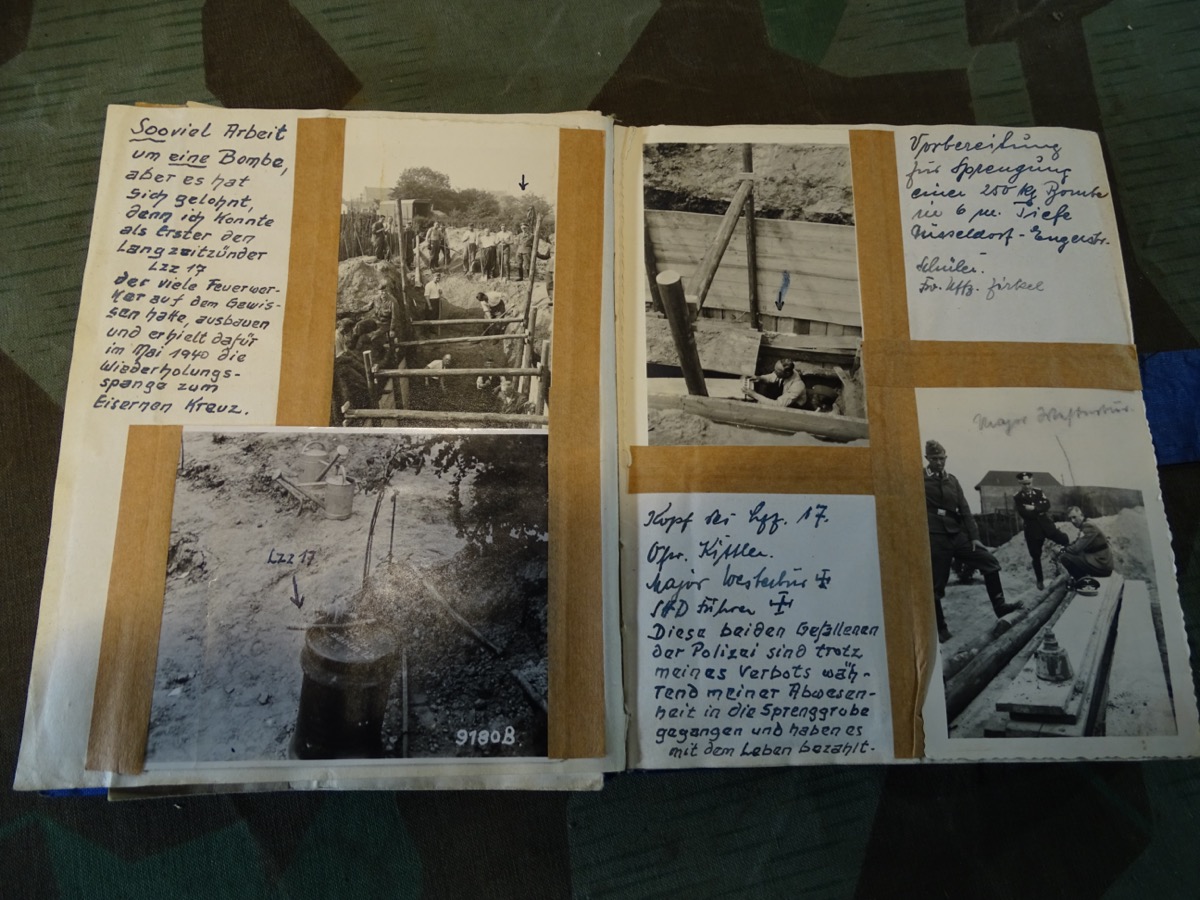 Sooviel Arbeit
um eine Bombe,
aber es hat
sich gelohnt,
denn ich konnte
als Erster den
Langzeitzünder
Lzz 17
der viele Feuerwer-
ker auf dem Gewis-
sen hatte, ausbauen
und erhielt dafür
im Mai 1940 die
Wiederholungs-
spange zum
Eisernen Kreuz.
Lzz 17
9180B.
Vorbereitung
für Sprengung
einer 250 kg Bombe
in 6 m. Tiefe
Düsseldorf-Engerstr.
Major Westerbur.
Kopf des Lzz. 17.
Major Westerbur ✠
SHD Führer ✠
Diese beiden Gefallenen
der Polizei sind trotz
meines Verbots wäh-
rend meiner Abwesen-
heit in die Sprenggrube
gegangen und haben es
mit dem Leben bezahlt.